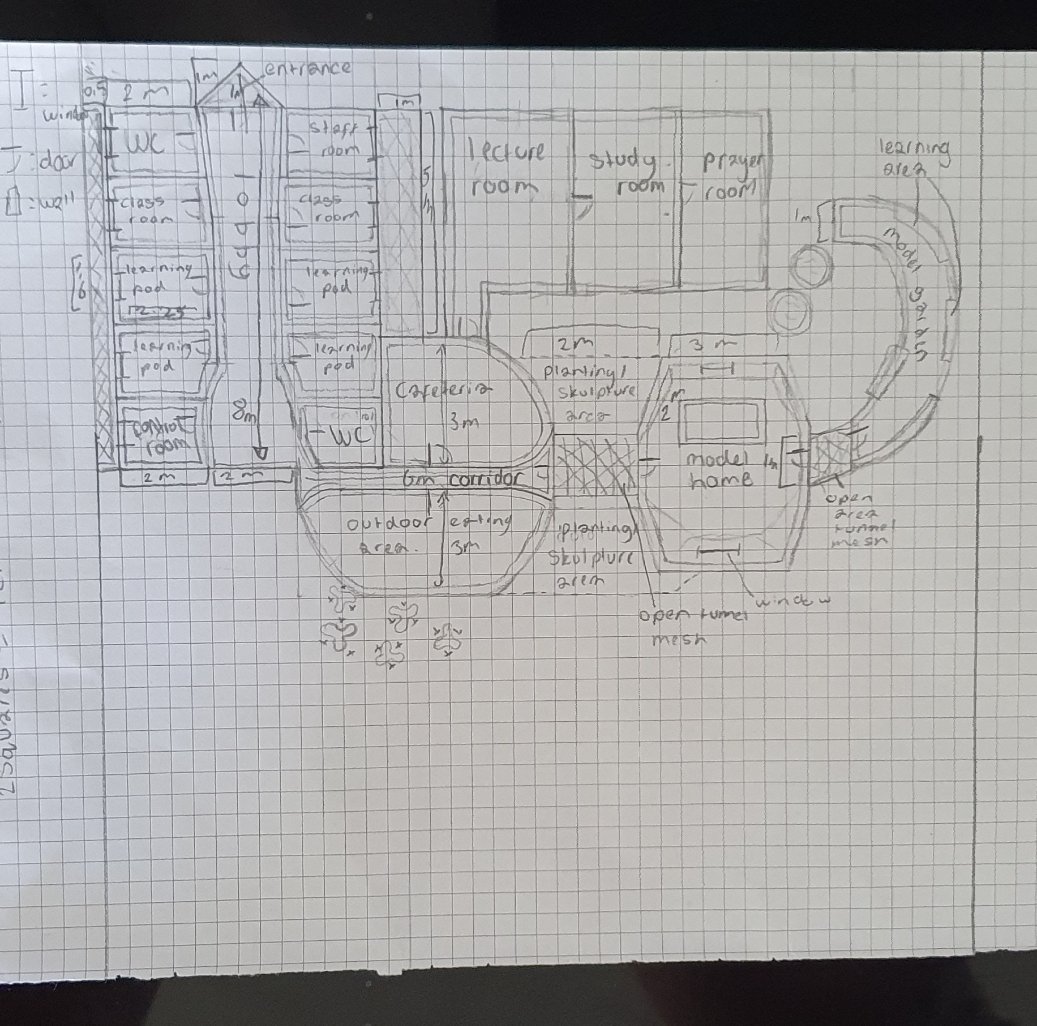 I =
window
J: door
▯: wall
0.5
2 m
1m
entrance
1m
WC
staff
room
class
room
class
room
lobby
learning
pod
learning
pod
learning
pod
learning
pod
control
room
WC
8m
2 m
2 m
1m
lecture
room
study
room
prayer
room
learning
area
1m
model
cafeteria
3m
2m
planting/
skulpture
area
3 m
2m
model
home
1m
6m corridor
outdoor eating
area. 3m
planting/
skulpture
area
open
area
tunnel
mesh
window
open tunnel
mesh
squares =